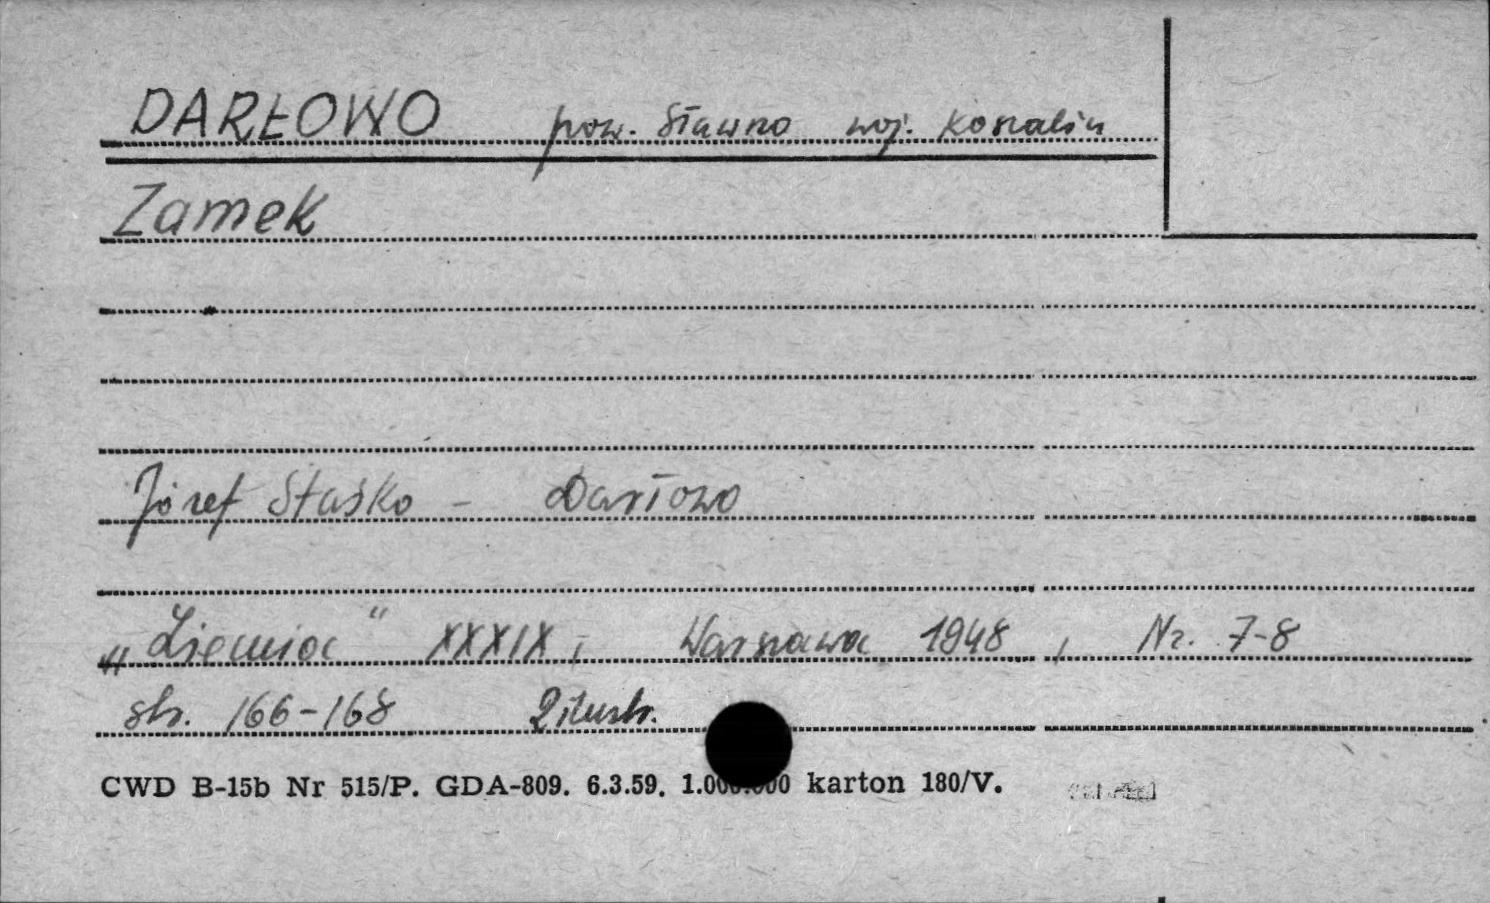 DARŁOWO pow. Sławno woj. Koszalin
Zamek
Józef Staśko - Darłowo
„Ziemia" XXXIX, Warszawa 1948, Nr. 7-8
str. 166-168 2 ilustr.
CWD B-15b Nr 515/P. GDA-809. 6.3.59. 1.000.000 karton 180/V.